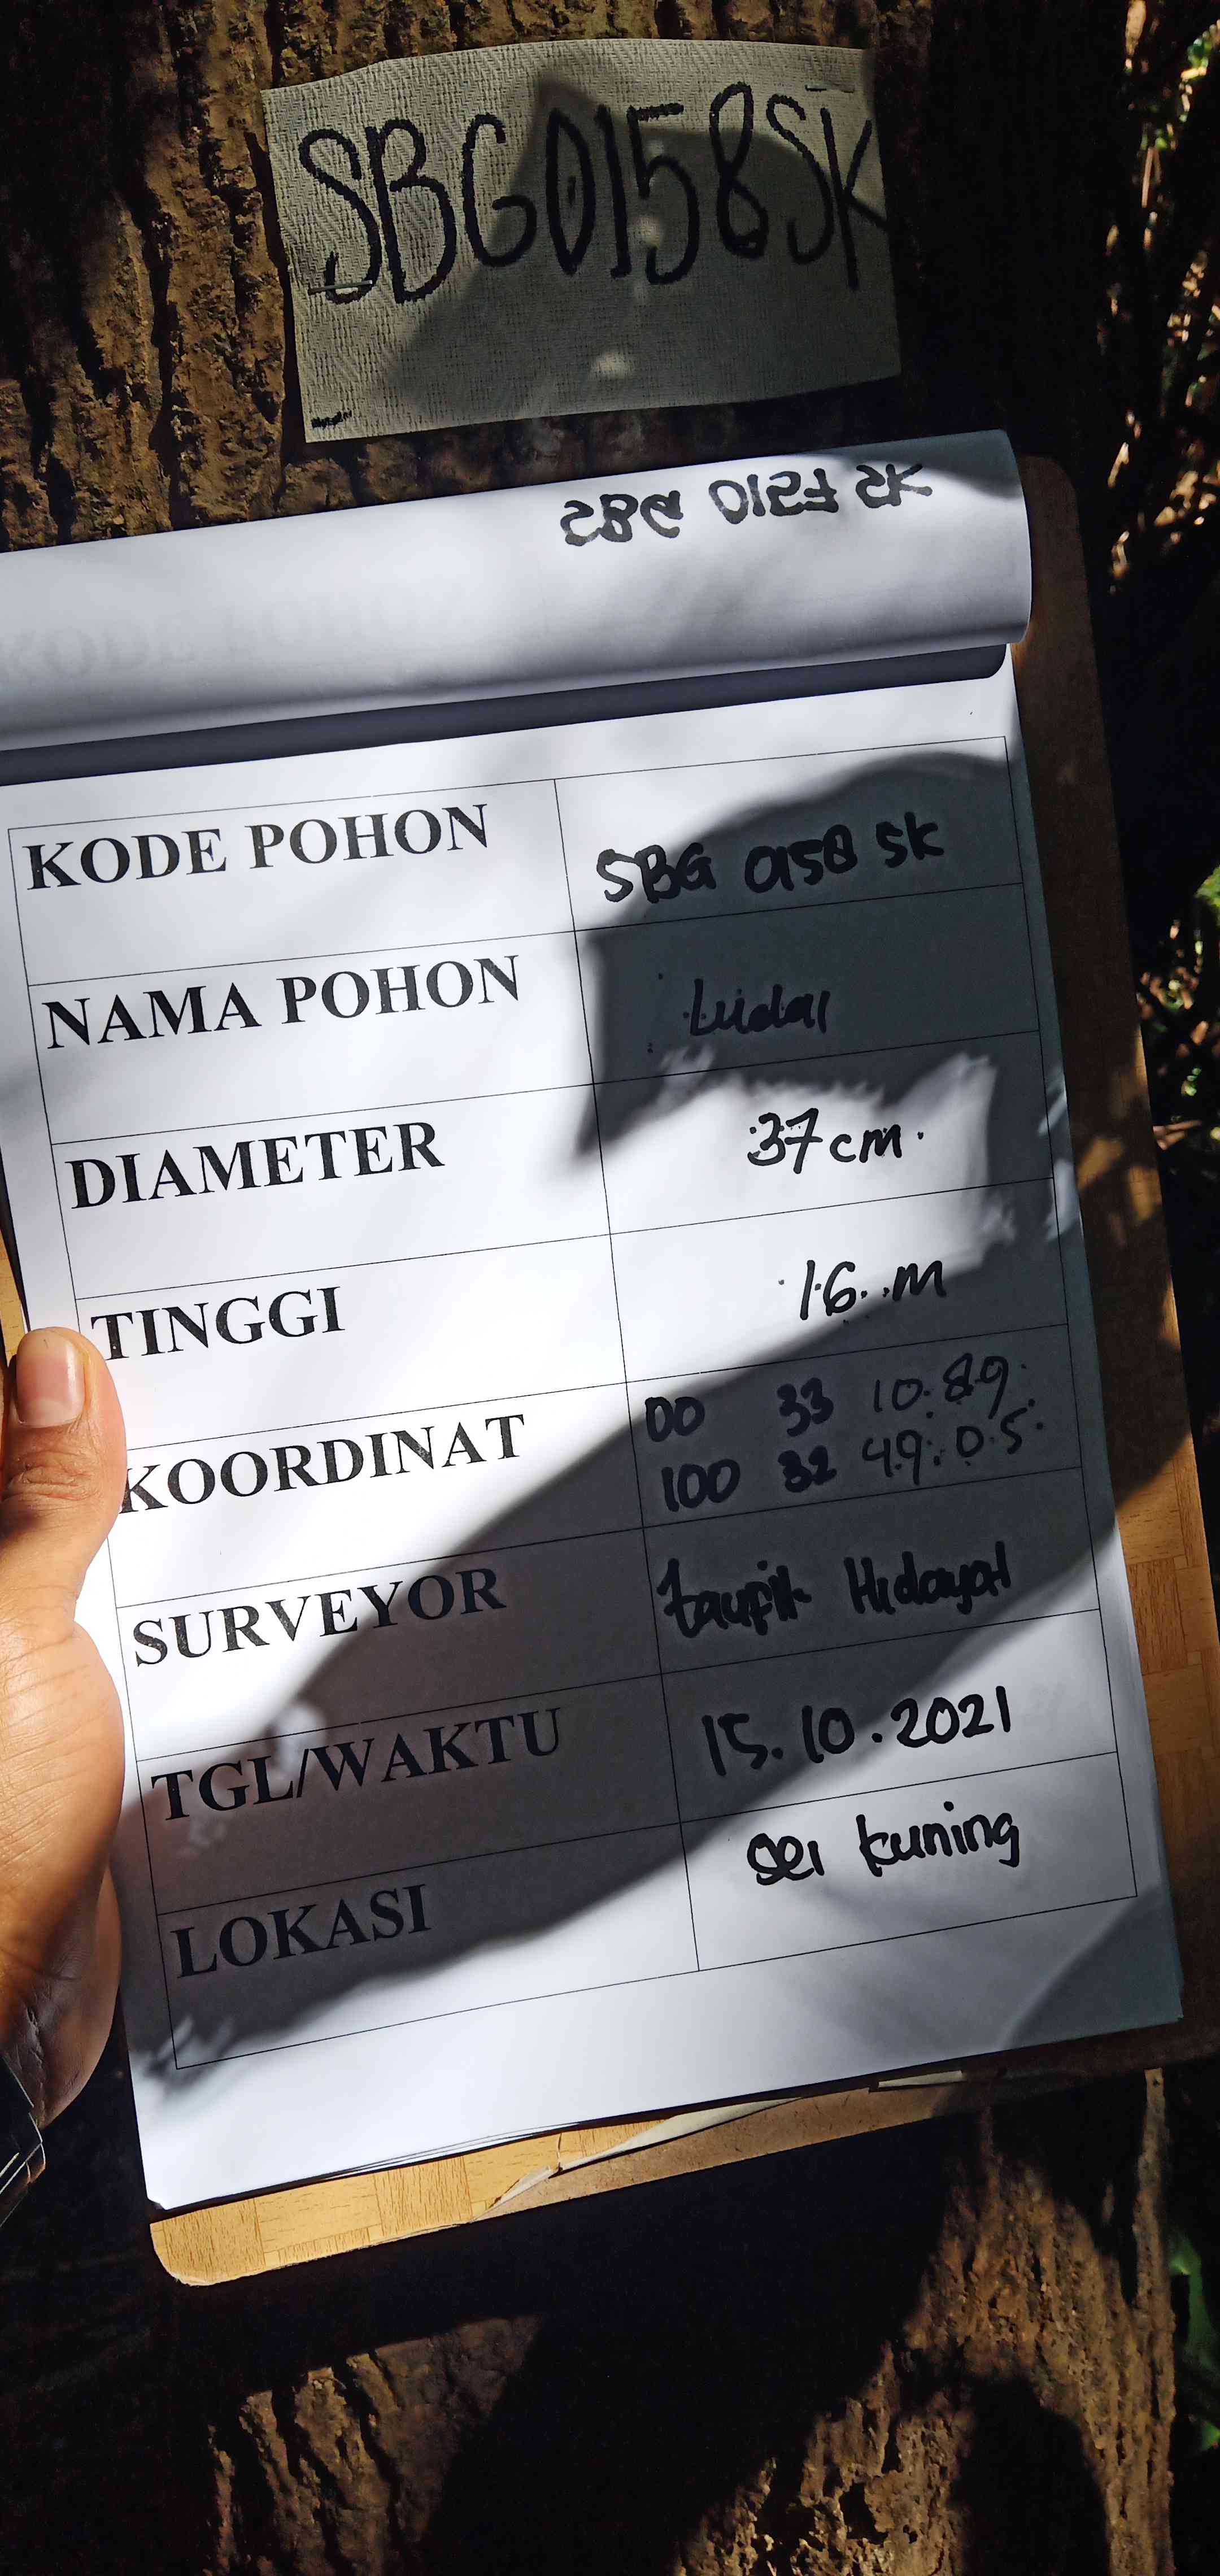 SBG0158SK
SBG 0157 SK
KODE POHON SBG 0158 SK
NAMA POHON Ludai
DIAMETER 37 cm
TINGGI 16 m
KOORDINAT 00 33 10.89
100 32 49.05
SURVEYOR taupik Hidayat
TGL/WAKTU 15.10.2021
LOKASI sei kuning